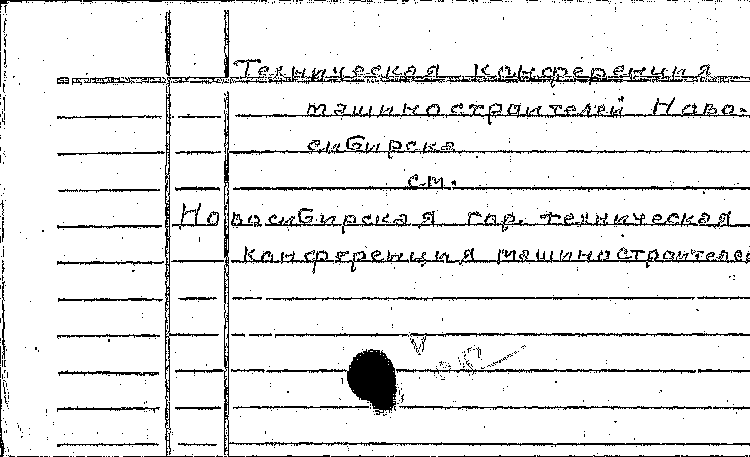 Техническая конференция
машиностроителей Ново-
сибирска
см.
Новосибирская гор. техническая
конференция машиностроителей